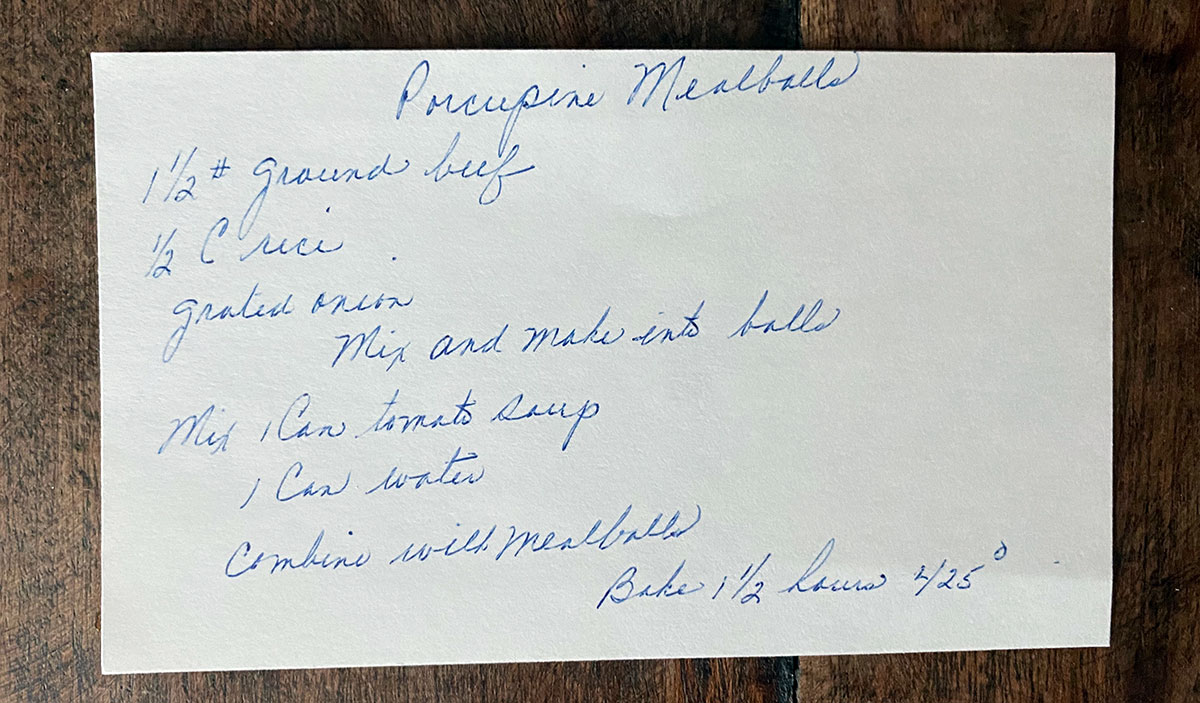 Porcupine Meatballs
1 1/2 # ground beef
1/2 C rice
grated onion
Mix and make into balls
Mix 1 Can tomato soup
1 Can water
Combine with meatballs
Bake 1 1/2 hours 425°